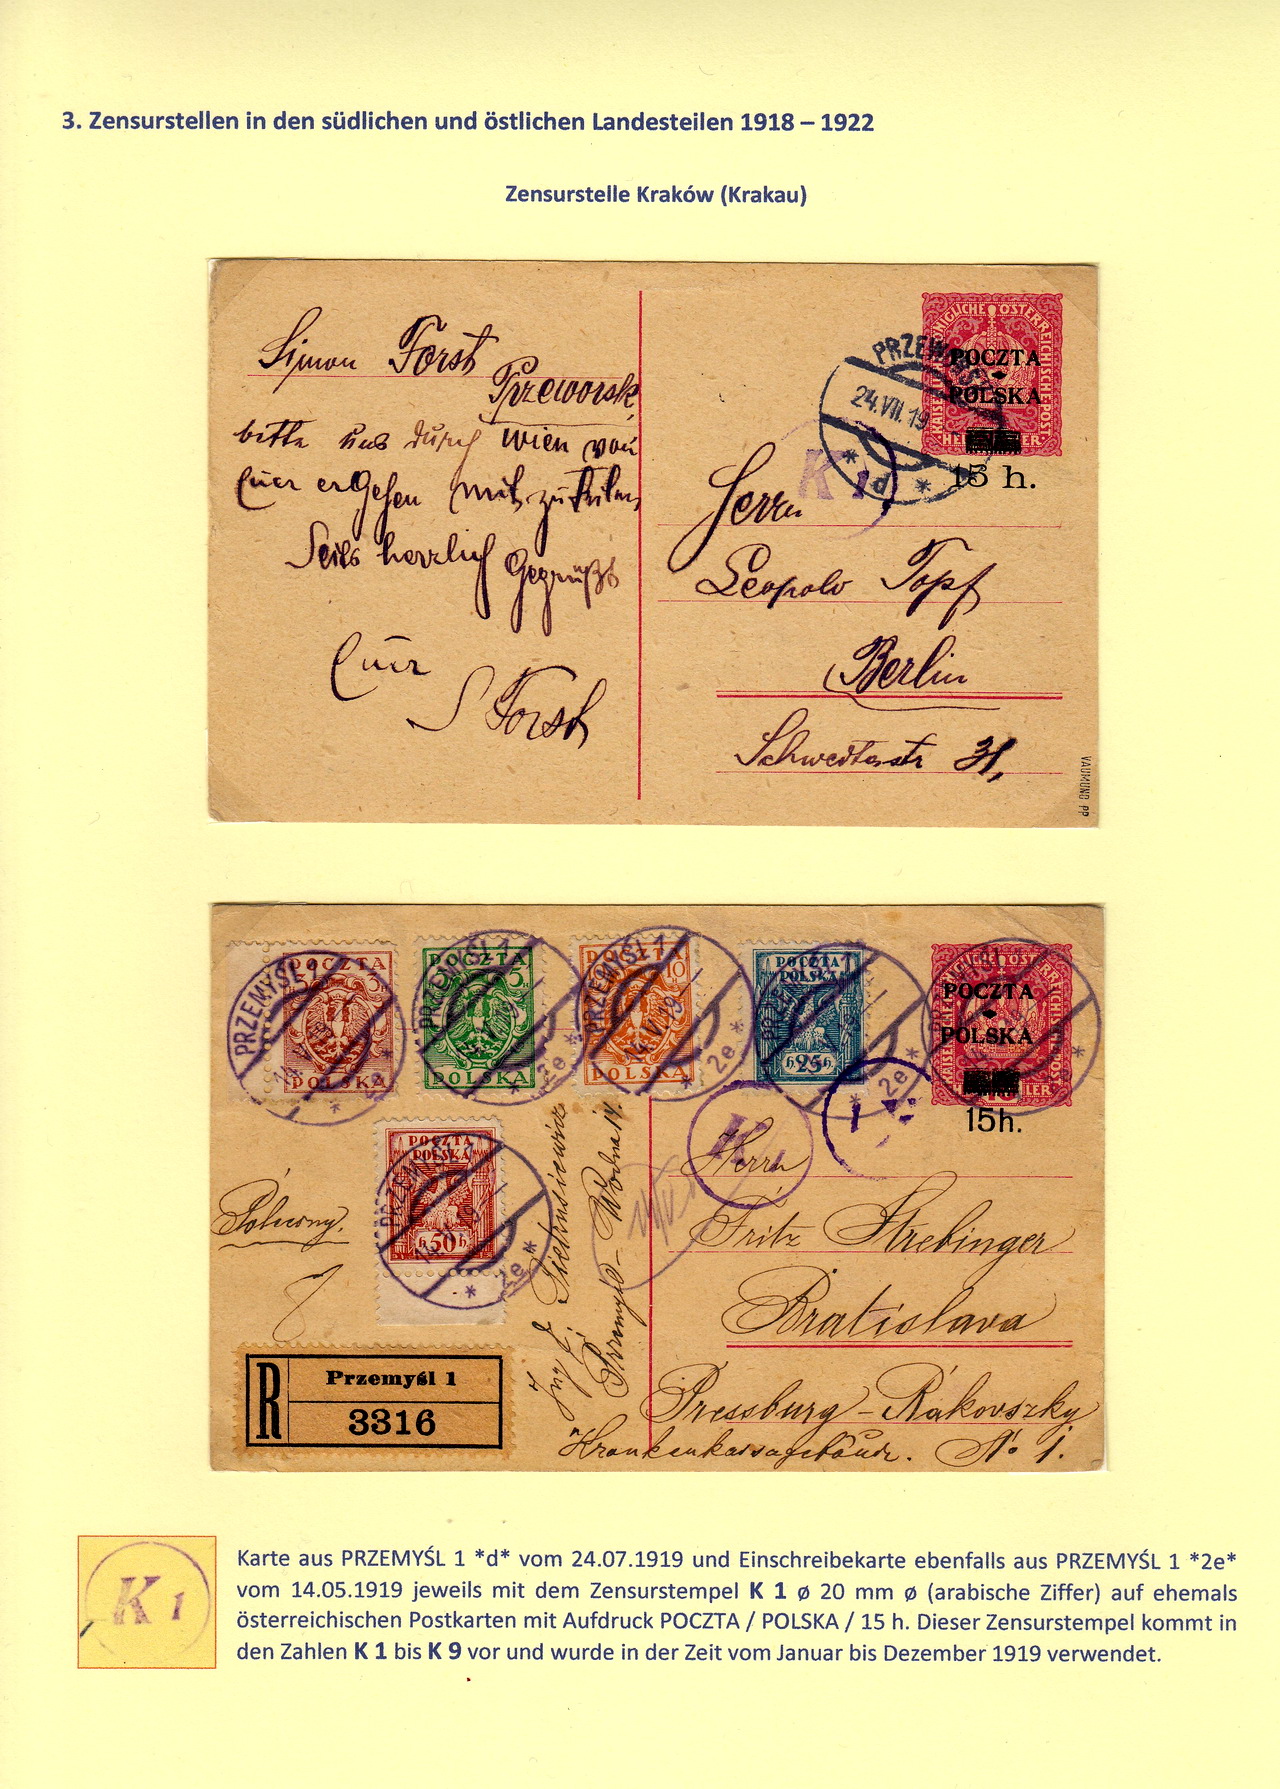 3. Zensurstellen in den südlichen und östlichen Landesteilen 1918 – 1922
Zensurstelle Kraków (Krakau)
Simon Forst
Przeworsk
bitte uns durch Wien von
Euer ergehen mitzuteilen
Seits herzlich Gegrüßt
Euer
S Forst
KAISERLICHE KÖNIGLICHE ÖSTERREICHISCHE POST
POCZTA
POLSKA
15 h.
24.VII.19
K 1
Herrn
Leopold Topf
Berlin
Schwedterstr 31,
VADMUND PP
POCZTA
3
POLSKA
PRZEMYŚL 1
POCZTA
5
POLSKA
PRZEMYŚL 1
2e
POCZTA
10
POLSKA
PRZEMYŚL 1
14.V.19
2e
POCZTA
POLSKA
h 25 h
PRZEMYŚL 1
2e
POCZTA
POLSKA
15h.
POCZTA
POLSKA
h 50 h
PRZEMYŚL 1
2e
K 1
Polecony.
Przemyśl – Wodna 14.
Herrn
Fritz Strebinger
Bratislava
Pressburg – Rákovszky
Krankenkassagebäude. No 1.
R
Przemyśl 1
3316
K 1
Karte aus PRZEMYŚL 1 *d* vom 24.07.1919 und Einschreibekarte ebenfalls aus PRZEMYŚL 1 *2e*
vom 14.05.1919 jeweils mit dem Zensurstempel K 1 ø 20 mm ø (arabische Ziffer) auf ehemals
österreichischen Postkarten mit Aufdruck POCZTA / POLSKA / 15 h. Dieser Zensurstempel kommt in
den Zahlen K 1 bis K 9 vor und wurde in der Zeit vom Januar bis Dezember 1919 verwendet.